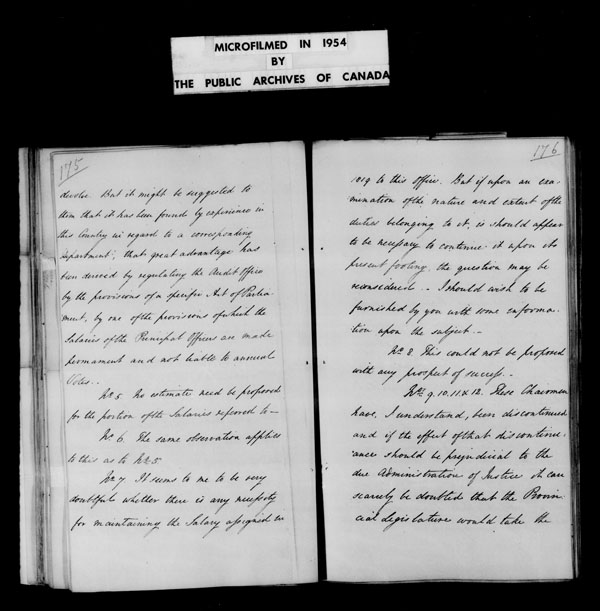 MICROFILMED IN 1954
BY
THE PUBLIC ARCHIVES OF CANADA
175
devolve. But it might be suggested to
them that it has been found by experience in
this Country in regard to a corresponding
department, that great advantage has
been derived by regulating the Audit Office
by the provisions of a specific Act of Parlia-
ment, by one of the provisions of which the
Salaries of the Principal Officers are made
permanent and not liable to annual
Votes.-
No. 5. No estimate need be proposed
for the portion of the Salaries referred to-
No 6. The same observation applies
to this as to No. 5.
No. 7 It seems to me to be very
doubtful whether there is any necessity
for maintaining the Salary assigned in
176
1819 to this Office. But if upon an exa-
mination of the nature and extent of the
duties belonging to it, is should appear
to be necessary to continue it upon its
present footing, the question may be
reconsidered - I should wish to be
furnished by you with some informa-
tion upon the subject.-
No. 8. This could not be proposed
with any prospect of success.-
Nos. 9. 10. 11. & 12. These Chairmen
have, I understand, been discontinued
and if the effect of that discontinu-
ance should be prejudicial to the
due Administration of Justice it can
scarcely be doubted that the Provin-
cial Legislature would take the